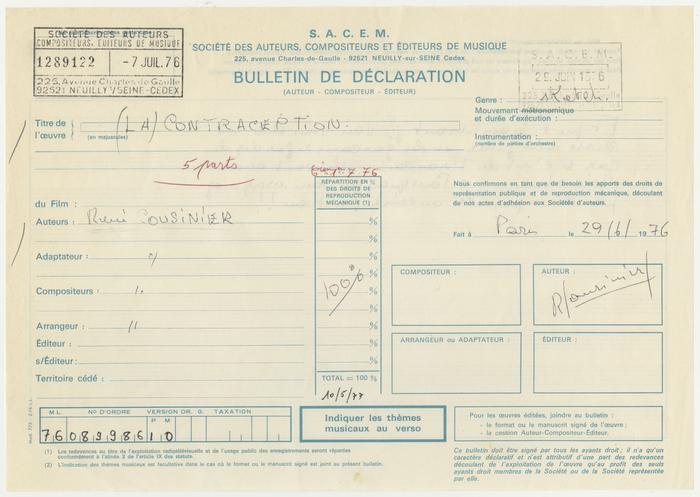 SOCIÉTÉ DES AUTEURS
COMPOSITEURS, ÉDITEURS DE MUSIQUE
1289122 -7 JUIL. 76
225, Avenue Charles de Gaulle
92521 NEUILLY S/SEINE - CEDEX
S. A. C. E. M.
SOCIÉTÉ DES AUTEURS, COMPOSITEURS ET ÉDITEURS DE MUSIQUE
225, avenue Charles-de-Gaulle - 92521 NEUILLY-sur-SEINE Cedex
BULLETIN DE DÉCLARATION
(AUTEUR - COMPOSITEUR - ÉDITEUR)
S. A. C. E. M.
29 JUIN 1976
Genre : Sketch
Mouvement métronomique
et durée d'exécution :
Instrumentation :
(nombre de parties d'orchestre)
Titre de l'œuvre (en majuscules) (LA) CONTRACEPTION.
5 parts
7.76
RÉPARTITION EN %
DES DROITS DE
REPRODUCTION
MÉCANIQUE (1)
Nous confirmons en tant que de besoin les apports des droits de
représentation publique et de reproduction mécanique, découlant
de nos actes d'adhésion aux Sociétés d'auteurs.
Fait à Paris le 29/6/ 1976
du Film :
Auteurs : René COUSINIER %
%
Adaptateur : " %
Compositeurs : " 100% %
%
Arrangeur : " %
Éditeur : %
s/Éditeur : %
Territoire cédé : TOTAL = 100 %
10/5/77
COMPOSITEUR :
AUTEUR :
R Cousinier
ARRANGEUR ou ADAPTATEUR :
ÉDITEUR :
M.L. N° D'ORDRE VERSION DR. G. TAXATION
P M
760899861 0
Indiquer les thèmes
musicaux au verso
Pour les œuvres éditées, joindre au bulletin :
- le format ou le manuscrit signé de l'œuvre ;
- la cession Auteur-Compositeur-Éditeur.
(1) Les redevances au titre de l'exploitation radiotélévisuelle et de l'usage public des enregistrements seront réparties
conformément à l'alinéa 3 de l'article IX des statuts.
(2) L'indication des thèmes musicaux est facultative dans le cas où le format ou le manuscrit signé est joint au présent bulletin.
Ce bulletin doit être signé par tous les ayants droit ; il n'a qu'un
caractère déclaratif et n'est attributif d'une part des redevances
découlant de l'exploitation de l'œuvre qu'au profit des seuls
ayants droit membres de la Société ou de la Société représentée
par elle.